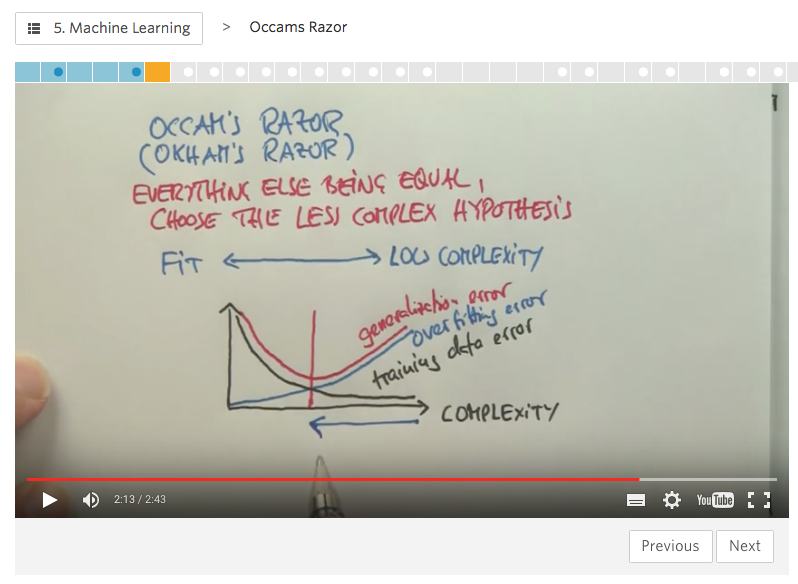 5. Machine Learning > Occams Razor
OCCAM'S RAZOR
(OKHAM'S RAZOR)
EVERYTHING ELSE BEING EQUAL,
CHOOSE THE LESS COMPLEX HYPOTHESIS
FiT LOW COMPLEXITY
generalization error
overfitting error
training data error
COMPLEXITY
2:13 / 2:43 YouTube
Previous Next